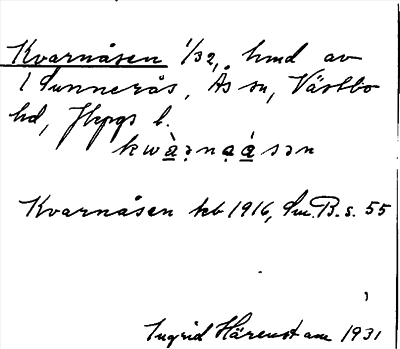 Kvarnåsen 1/32, hmd av
1 Sunnerås, Ås sn, Västbo
hd, Jkpgs l.
kwàrnaásən
Kvarnåsen kb 1916, Sm. B. s. 55
Ingrid Härenstam 1931